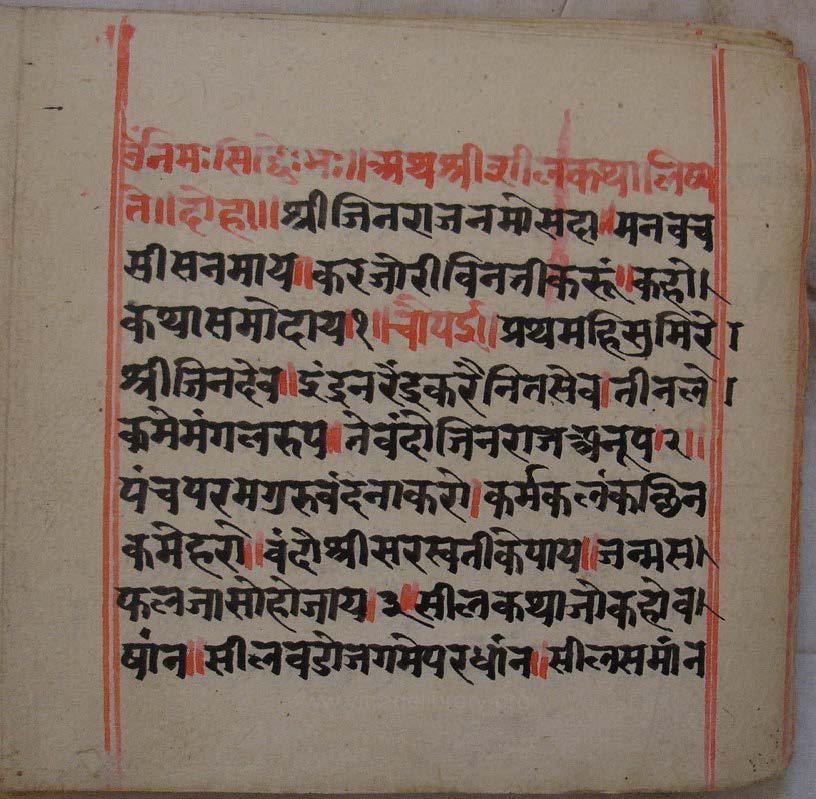 उंनमःसिद्धेःभः॥अथश्रीशीलकथालिष्य
ते॥दोहा॥श्रीजिनराजनमोसदा॥मनवच
सीसनमाय॥करजोरीविनतीकरूं॥कहो।
कथासमोदाय१॥चौपई॥प्रथमहिसुमिरे।
श्रीजिनदेव॥इंद्रनरेंद्रकरैनितसेव।तीनलो।
कमेमंगलरुप॥तेवंदौजिनराजअनूप२॥
पंचपरमगुरुवंदनाकरो।कर्मकलंकछिन
कमेहरो॥वंदौश्रीसरस्वतीकेपाय॥जन्मस।
फलजासोहोजाय।३॥सीलकथाजोकहोव।
षांन॥सीलवडोजगमेपरधांन॥सीलसमांन